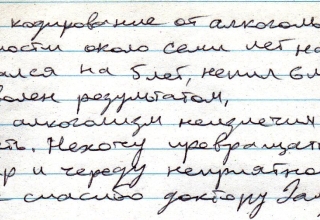 кодирование от алкоголь
ности около семи лет на
ался на 5 лет, непил 6 л
волен результатом,
алкоголизм неизлечим
ть. Нехочу превращать
р и череду неприятно
спасибо доктору За